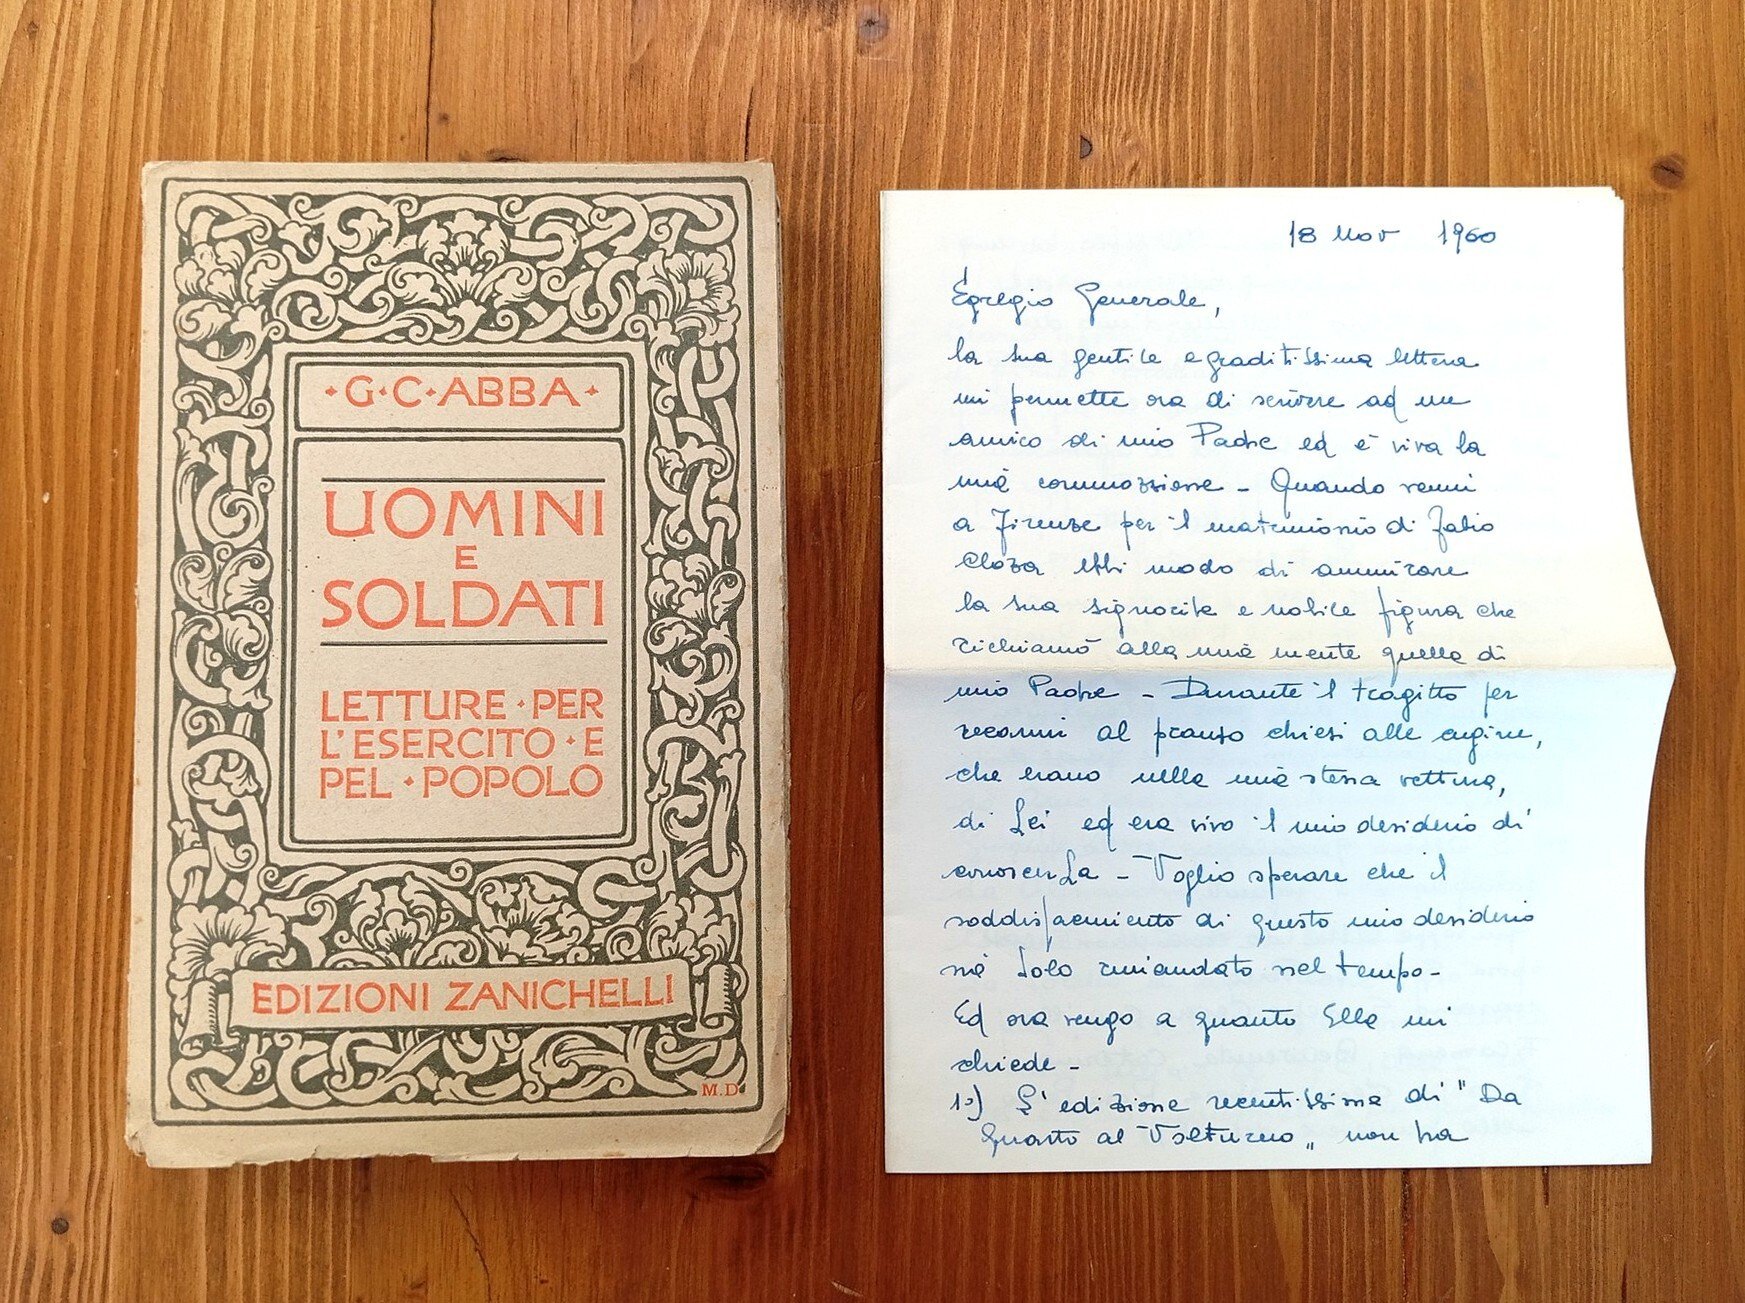 ·G·C·ABBA·
UOMINI
E
SOLDATI
LETTURE·PER
L'ESERCITO·E
PEL·POPOLO
EDIZIONI ZANICHELLI
M.D.
18 Nov 1960
Egregio Generale,
la sua gentile e graditissima lettera
mi permette ora di scrivere ad un
amico di mio Padre ed è viva la
mia commozione - Quando venni
a Firenze per il matrimonio di Fabio
Cloza ebbi modo di ammirare
la sua signorile e nobile figura che
richiamò alla mia mente quella di
mio Padre - Durante il tragitto per
recarmi al pranzo chiesi alle cugine,
che erano nella mia stessa vettura,
di Lei ed era vivo il mio desiderio di
conoscerLa - Voglio sperare che il
soddisfacimento di questo mio desiderio
sia solo rimandato nel tempo -
Ed ora vengo a quanto Ella mi
chiede -
1°) L'edizione recentissima di "Da
Quarto al Volturno" non ha